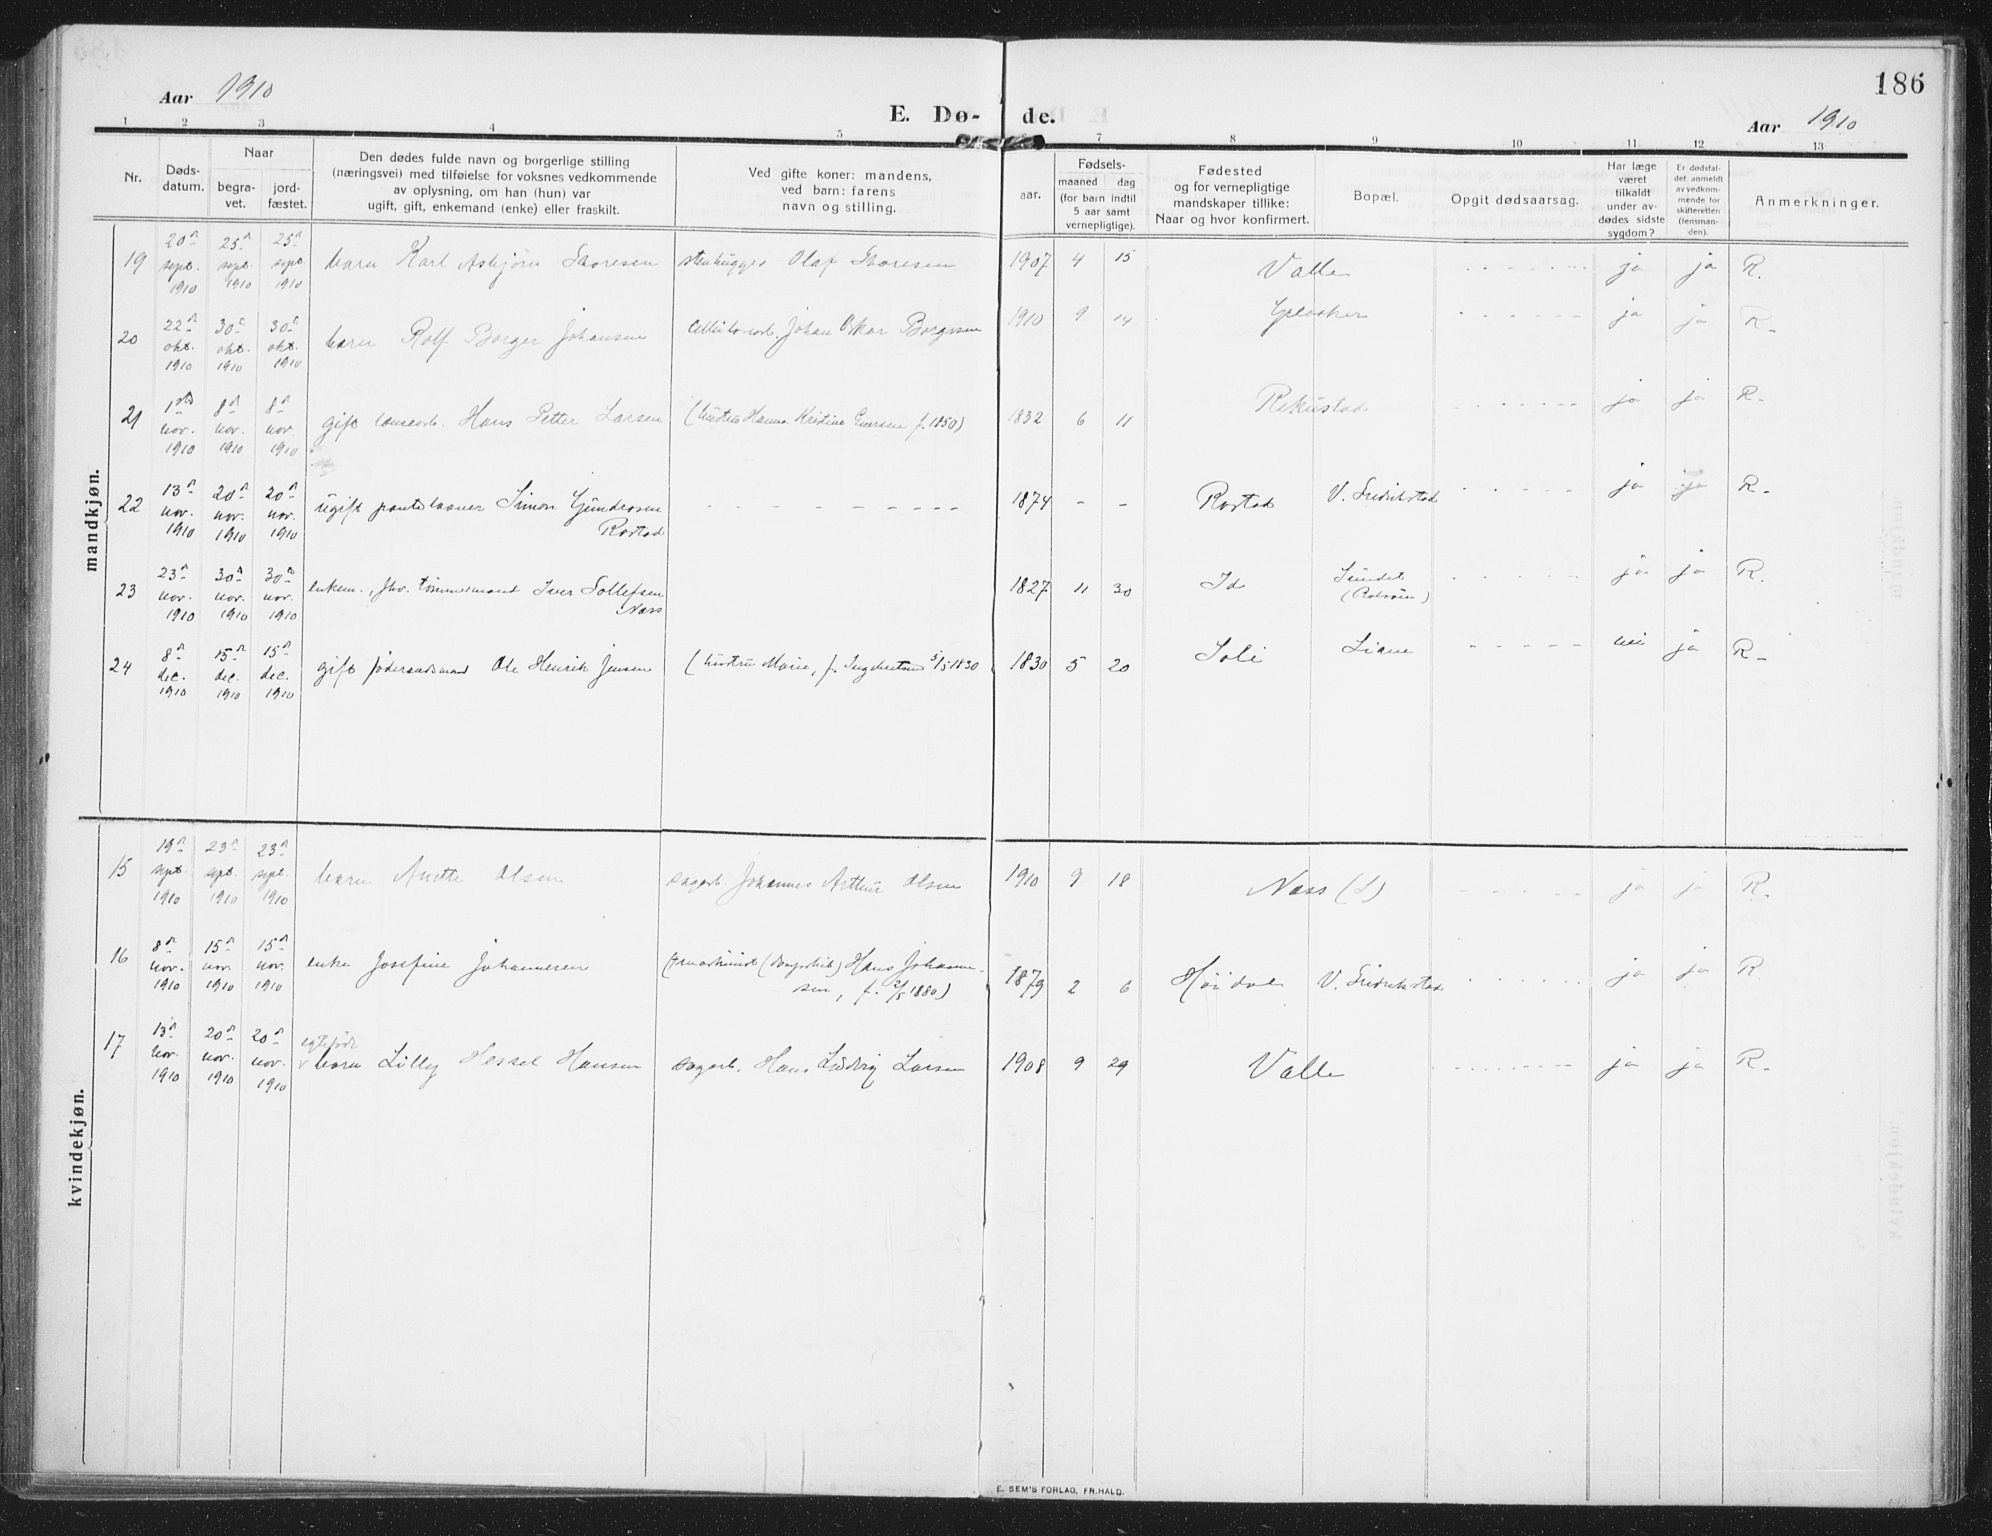 186
Aar 1910
E. Dø- de.
Aar 1910
1 2 3 4 5 7 8 9 10 11 12 13
Nr.
Døds-
datum.
Naar
begra-
vet.
jord-
fæstet.
Den dødes fulde navn og borgerlige stilling
(næringsvei) med tilføielse for voksnes vedkommende
av oplysning, om han (hun) var
ugift, gift, enkemand (enke) eller fraskilt.
Ved gifte koner: mandens,
ved barn: farens
navn og stilling.
aar.
Fødsels-
maaned dag
(for barn indtil
5 aar samt
vernepligtige).
Fødested
og for vernepligtige
mandskaper tillike:
Naar og hvor konfirmert.
Bopæl.
Opgit dødsaarsag.
Har læge
været
tilkaldt
under av-
dødes sidste
sygdom?
Er dødsfal-
det anmeldt
av vedkom-
mende for
skifteretten
(lensman-
den).
Anmerkninger.
mandkjøn.
19 20 sept. 1910 25 sept. 1910 25 sept. 1910 barn Karl Asbjørn Thoresen stenhugger Olaf Thoresen 1907 4 15 Valle ja ja R.
20 22 okt. 1910 30 okt. 1910 30 okt. 1910 barn Rolf Borger Johansen Johan Oskar Borgersen 1910 9 14 Greaaker ja ja R.
21 1ste nov. 1910 8 nov. 1910 8 nov. 1910 gift Hans Petter Larsen (hustru Hanna Kristine f. 1850) 1832 6 11 Rekustad ja ja R.
22 13 nov. 1910 20 nov. 1910 20 nov. 1910 ugift pantelaaner Simon Gundrosen
Rostad - - - 1874 - - Rostad V. Fredrikstad ja ja R.
23 23 nov. 1910 30 nov. 1910 30 nov. 1910 enkem., fhv. tømmermand Iver Tollefsen
Næss 1827 11 30 Id Sundet ja ja R.
24 8 dec. 1910 15 dec. 1910 15 dec. 1910 gift føderaadsmand Ole Henrik Jensen (hustru Marie, f. Ingebretsen 5/5 1830 1830 5 20 Soli Liane nei ja R.
kvindekjøn.
15 19 sept. 1910 23 sept. 1910 23 sept. 1910 barn Anette Olsen sagarb. Johannes Arthur Olsen 1910 9 18 Næss (L) ja ja R.
16 8 nov. 1910 15 nov. 1910 15 nov. 1910 enke Josefine Johannesen (dampskib) Hans Johanne-
sen, f. 1880) 1879 2 6 Høidal V. Fredrikstad ja ja R.
17 13 nov. 1910 20 nov. 1910 20 nov. 1910 egtefødt
barn Lilly Hessel Hansen sagarb. Hans Ludvig Larsen 1908 9 29 Valle ja ja R.
E. SEM'S FORLAG, FR.HALD.